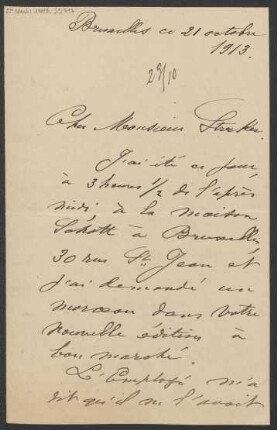 Bruxelles ce 21 octobre
1913.
29/10
Cher Monsieur Strecker.
J'ai été ce jour,
à 3 heures 1/2 de l'après
midi, à la maison
Schott à Bruxelles,
30 rue St Jean et
j'ai demandé un
morceau dans votre
nouvelle édition à
bon marché.
L'Employé m'a
dit qu'il ne l'avait